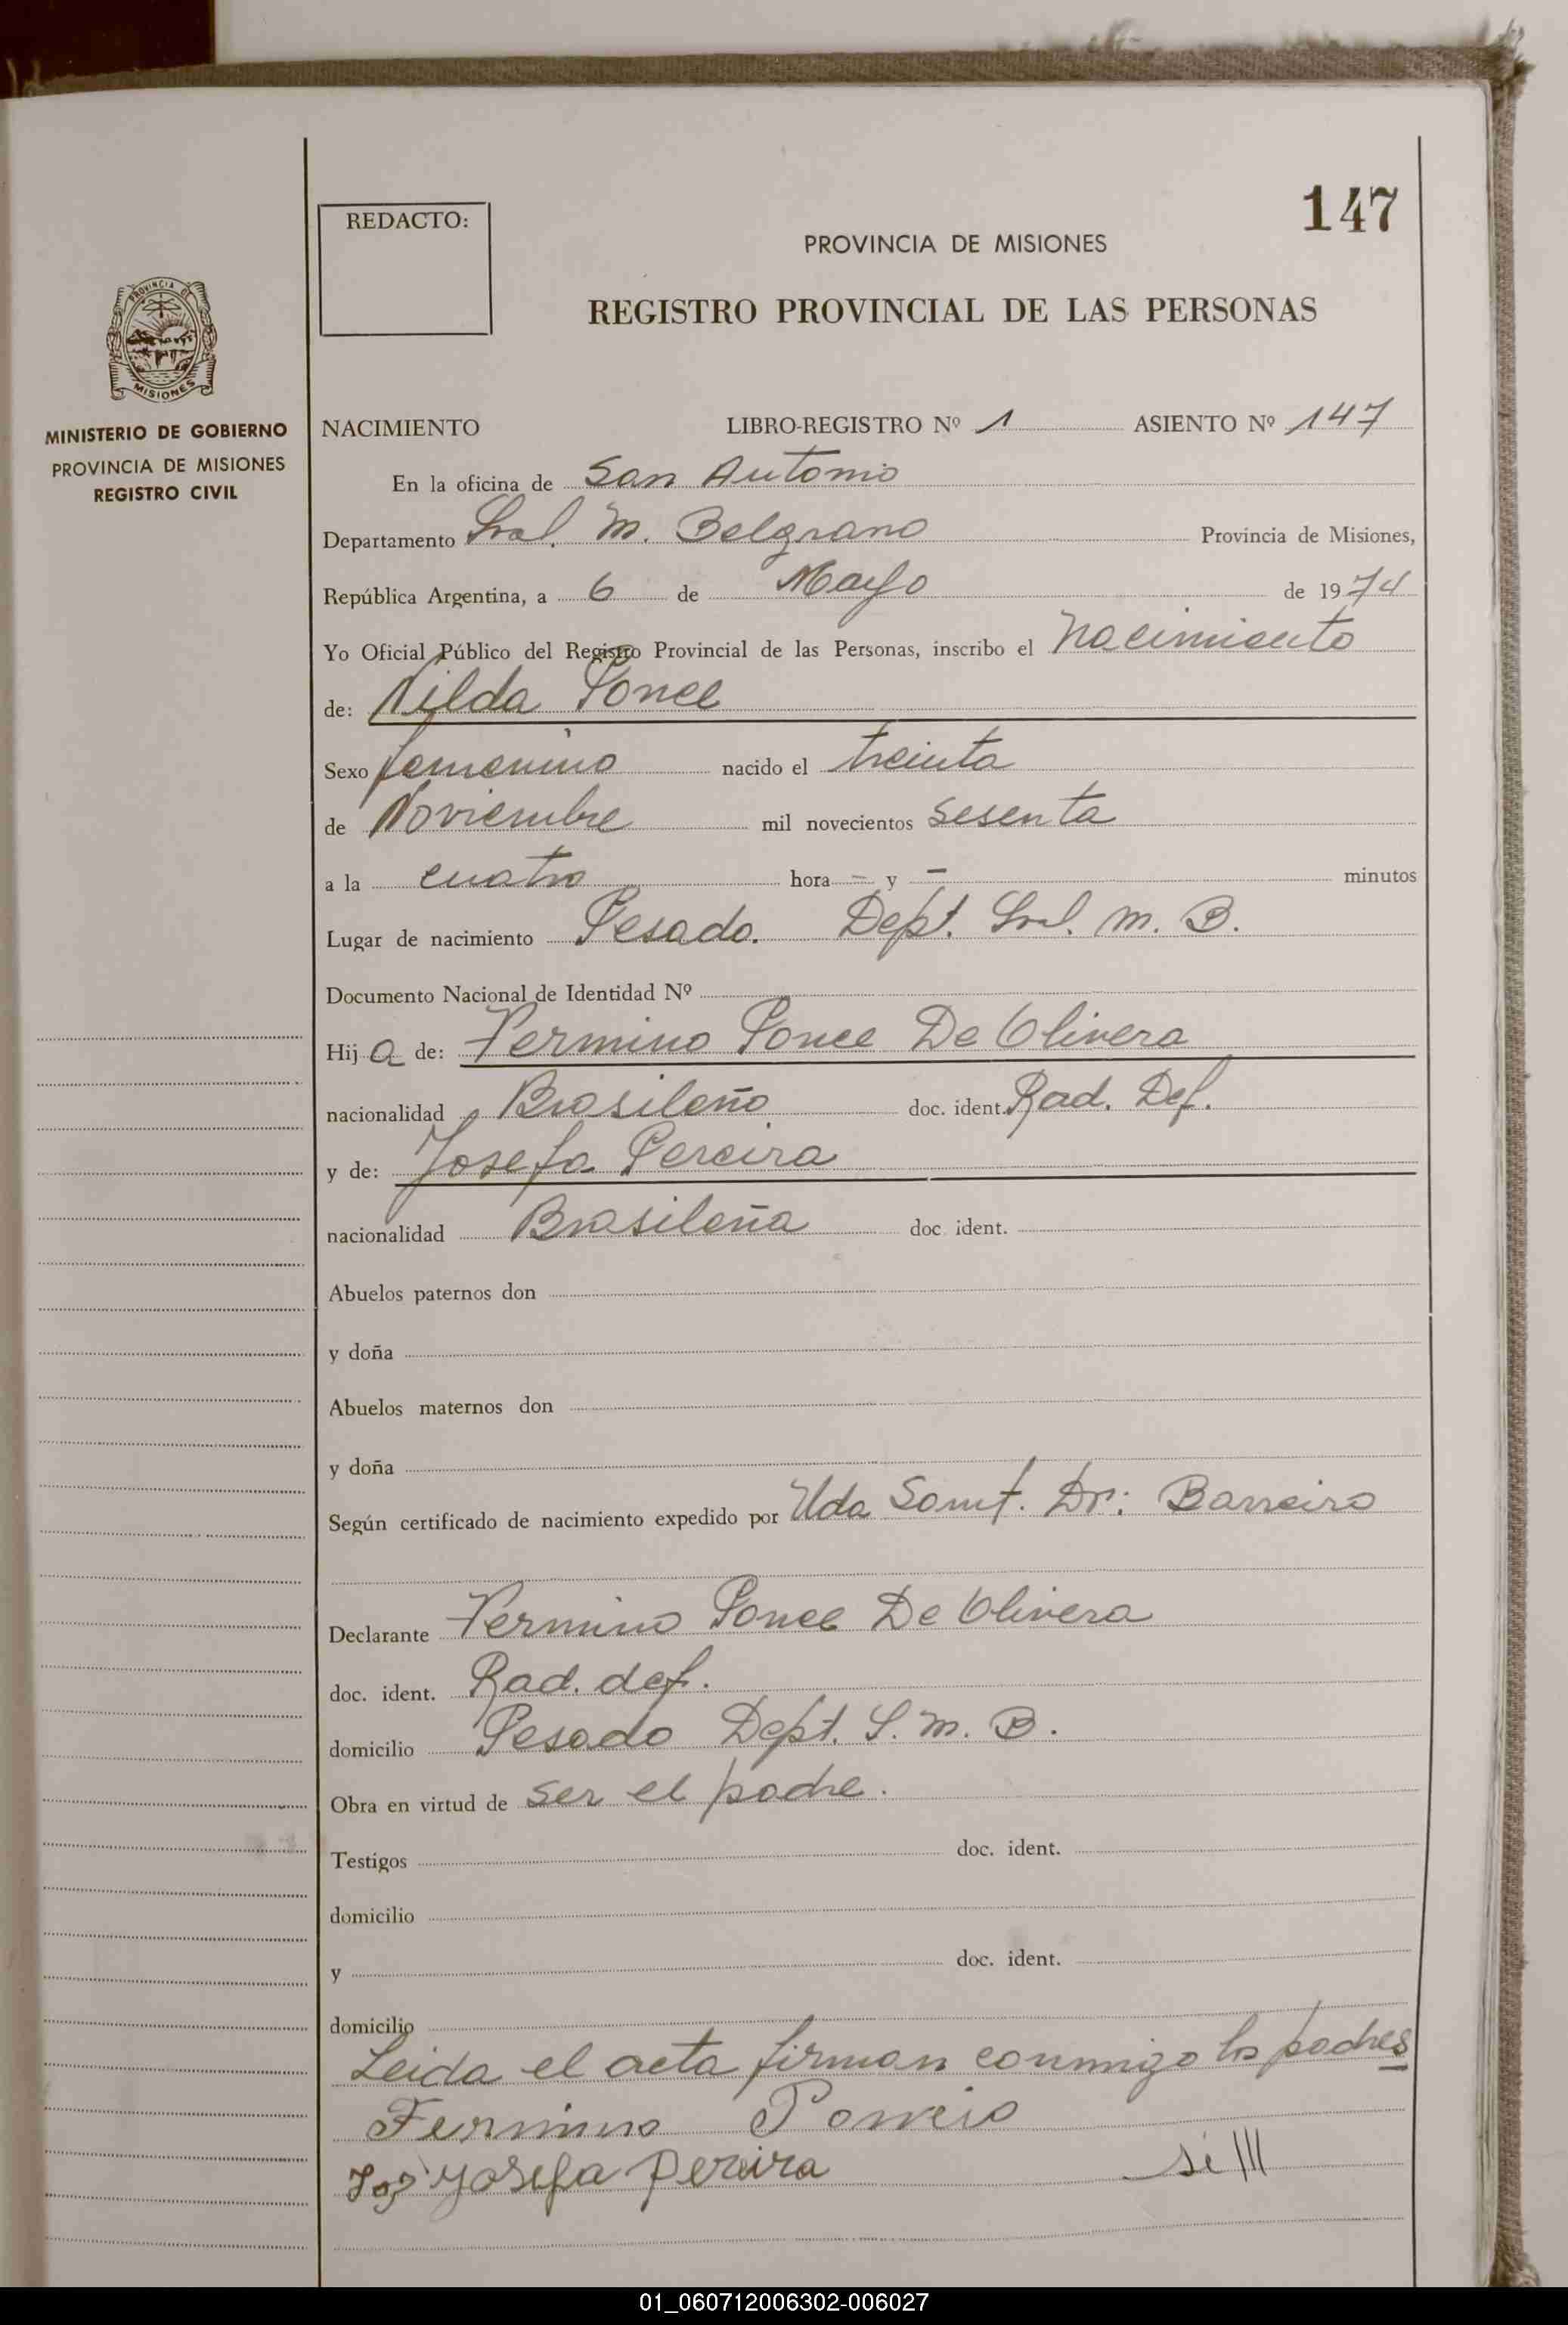 147
REDACTO:
PROVINCIA DE MISIONES
REGISTRO PROVINCIAL DE LAS PERSONAS
PROVINCIA DE
MISIONES
MINISTERIO DE GOBIERNO
PROVINCIA DE MISIONES
REGISTRO CIVIL
NACIMIENTO LIBRO-REGISTRO Nº 1 ASIENTO Nº 147
En la oficina de San Antonio
Departamento Gral. M. Belgrano Provincia de Misiones,
República Argentina, a 6 de Mayo de 1974
Yo Oficial Público del Registro Provincial de las Personas, inscribo el Nacimiento
de: Nilda Ponce
Sexo femenino nacido el treinta
de Noviembre mil novecientos sesenta
a la cuatro hora - y - minutos
Lugar de nacimiento Pesado. Dept. Gral. M. B.
Documento Nacional de Identidad Nº
Hij a de: Fermino Ponce De Olivera
nacionalidad Brasileño doc. ident. Rad. Def.
y de: Josefa Pereira
nacionalidad Brasileña doc. ident.
Abuelos paternos don
y doña
Abuelos maternos don
y doña
Según certificado de nacimiento expedido por Dr: Barreiro
Declarante Fermino Ponce De Olivera
doc. ident. Rad. def.
domicilio Pesado Dept. G. M. B.
Obra en virtud de ser el padre.
Testigos doc. ident.
domicilio
y doc. ident.
domicilio
Leida el acta firman conmigo los padres
Fermino
Josefa pereira